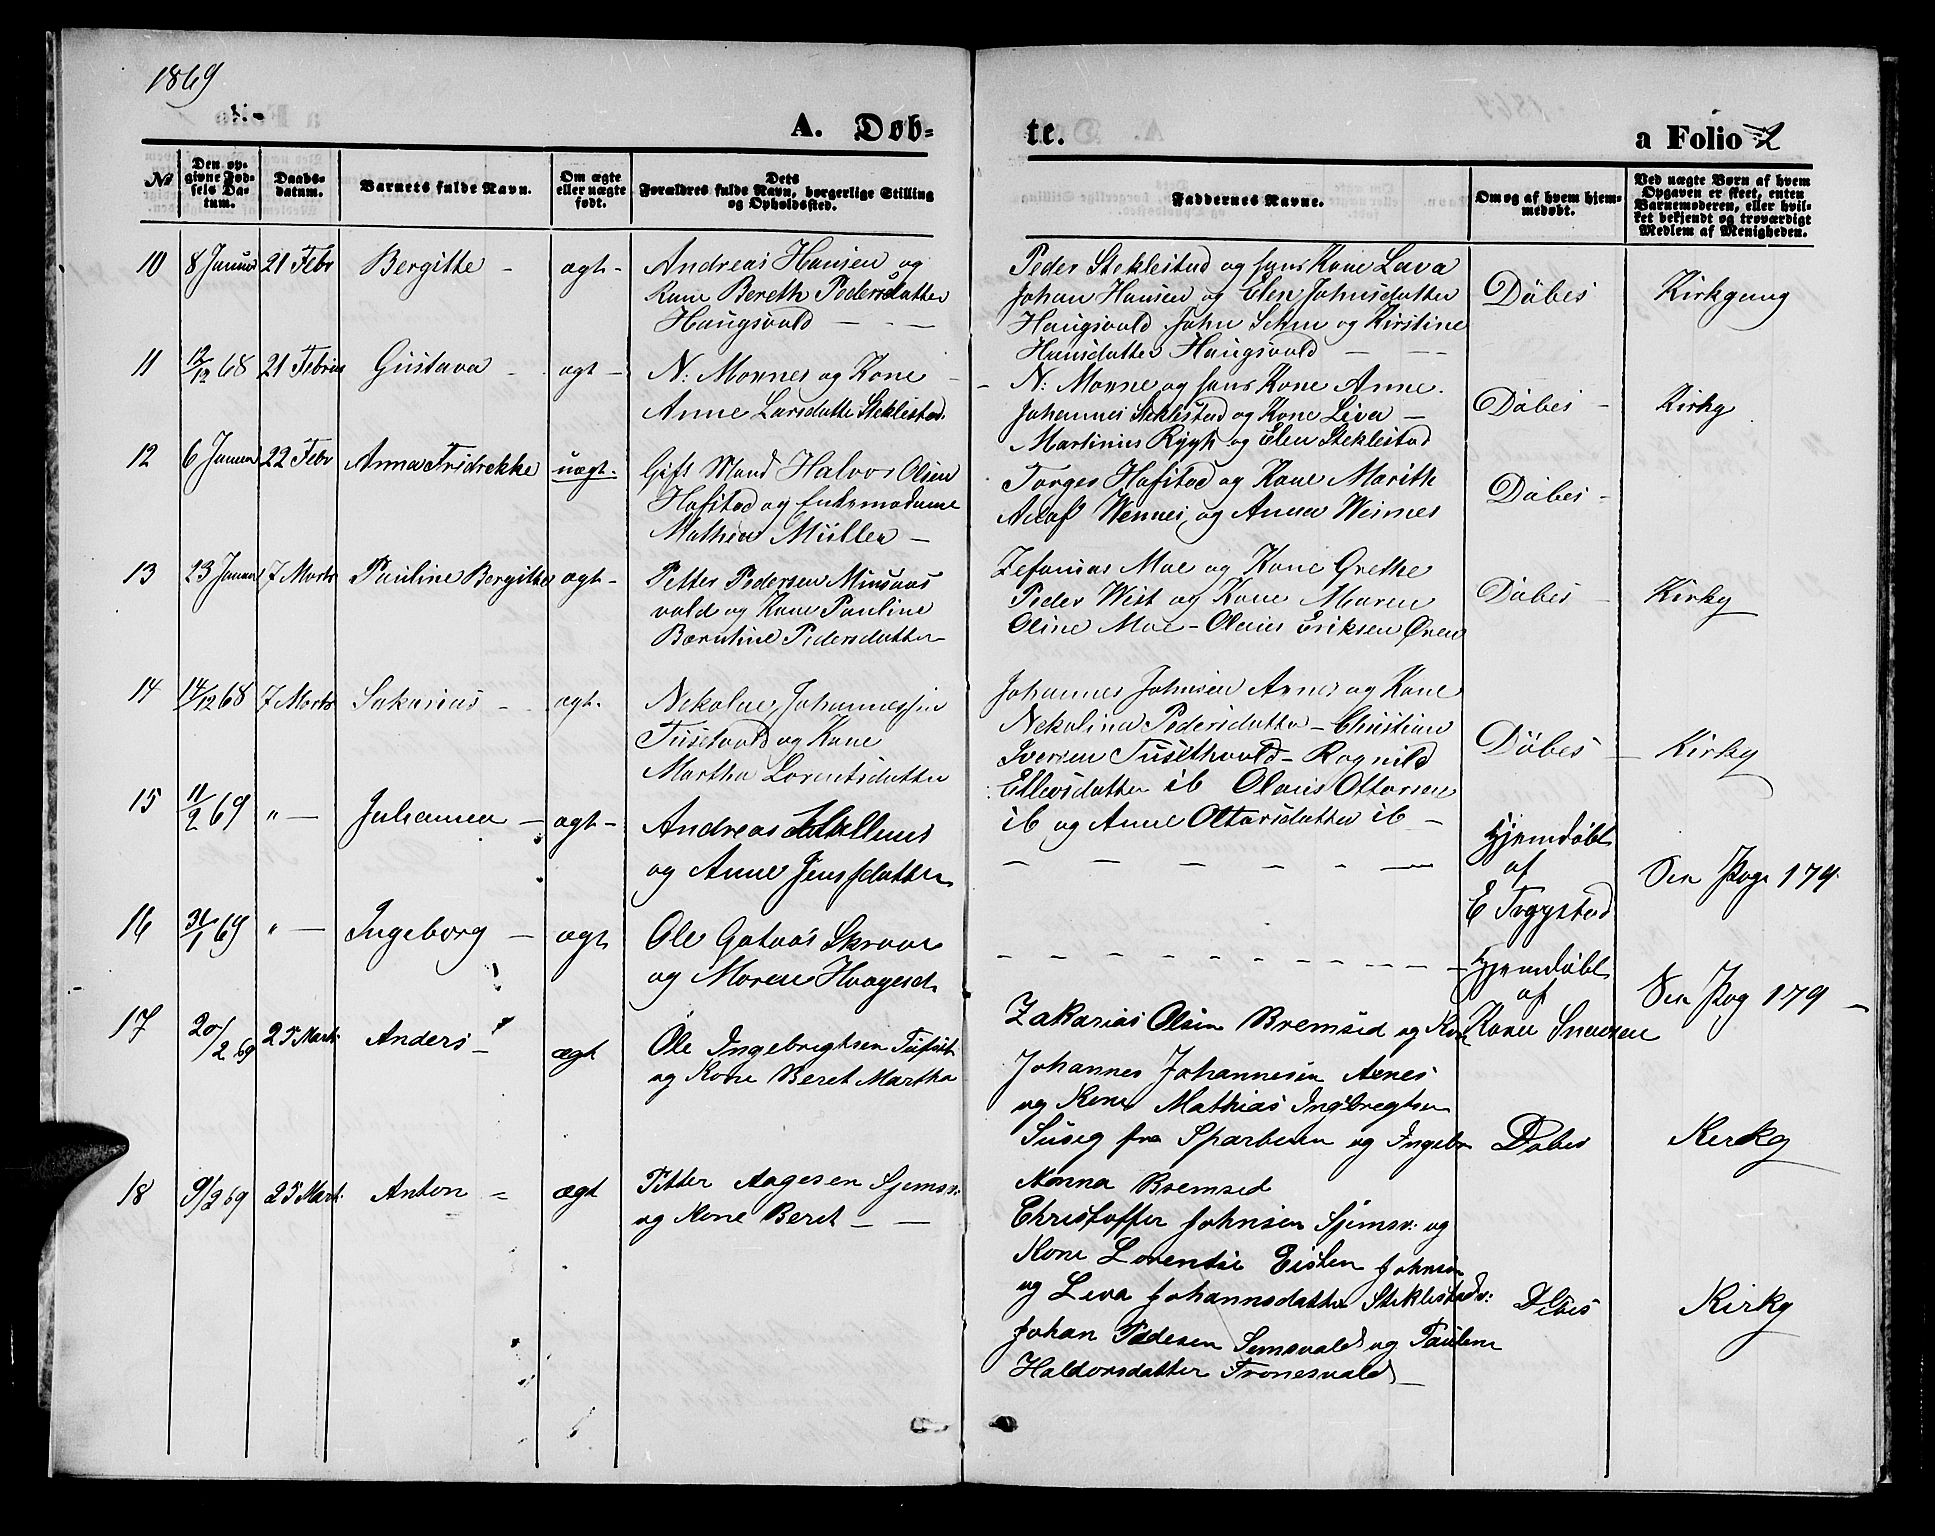 1869
A. Døb-
te.
a Folio 2
No
Den op-
givne Fød-
sels Da-
tum.
Daabs-
datum.
Barnets fulde Navn.
Om ægte
eller uægte
født.
Dets
Forældres fulde Navn, borgerlige Stilling
og Opholdssted.
Faddernes Navne.
Om og af hvem hjem-
medøbt.
Ved uægte Børn af hvem
Opgaven er skeet, enten
Barnemoderen, eller hvil-
ket bekjendt og troværdigt
Medlem af Menigheden.
10 8 Januar 21 Febr Bergitte - ægt -
Andreas Hansen og
Kone Bereth Pedersdatter
Haugsvald
Peder Steklestad og hans Kone Leva
Johan Hansen og Elen Johnsdatter
Haugsvald John Sehm og Kirstine
Hansdatter Haugsvald
Döbes Kirkgang
11 12/12 68 21 Februar Gustava - ægt -
N: Monnes og Kone -
Anne Larsdatter Steklestad
- N: Monne og hans Kone Anne.
Johannes Steklestad og Kone Leva -
Martinus Rygh og Elen Steklestad
Döbes - Kirkg
12 6 Januar 22 Febr Anna Fridrekke uægt -
Gift Mand Halvor Olsen
Hofstad og Enkemadame
Mathea Müller -
Torges Hofstad og Kone Marith
Adolf Wennes og Anna Weimes
Döbes -
13 23 Januar 7 Marts Pauline Bergitha ægt -
Petter Pedersen Minsaas
vald og Kone Pauline
Bærntine Pedersdatter
Zefanias Moe og Kone Grethe
Peder Wist og Kone Maren
Oline Moe - Olaus Eriksen Øren
Döbes - Kirkg
14 14/12 68 7 Marts Sakarias - ægt -
Nekolai Johannessen
Tusetvald og Kone
Martha Lorentsdatter
Johannes Johnsen Arnes og Kone
Nekolina Pedersdatter - Christian
Iversen Tusethvald - Ragnild
Ellevsdatter ib Olaus Ottersen
ib og Anne Ottarsdatter ib -
Döbes - Kirkg
15 11/2 69 " - Johanna - ægt -
Andreas Hallems
og Anne Jensdatter
Hjemdöbt
af
E Tryystad
Sen Pag 179
16 31/1 69 " - Ingeborg - ægt
Ole Gataas Skraae
og Moren Haagesd.
Hjemdöbt
af
Karen Snausen
Sen Pag 179 -
17 20/2 69 25 Mart. Anders - ægt
Ole Ingebrigtsen Tuset
og Kone Beret Martha
Zakarias Olsen Bremsed og Kon
Johannes Johannesen Arnes
og Kone Mathias Ingebregtsen
Suseg fra Sparbuen og Ingebr
Nonna Bremsed
Döbes Kirkg
18 9/2 69 25 Mart. Anton - ægt
Petter Aagesen Sjemsv:
og Kone Beret - -
Christoffer Johnsen Sjemsv: og
Kone Lorentse Eisten Johnsen
og Leva Johannsdatter Steklestadv:
Johan Pedesen Semsvald og Paulene
Haldorsdatter Tronesvald -
Döbes Kirkg